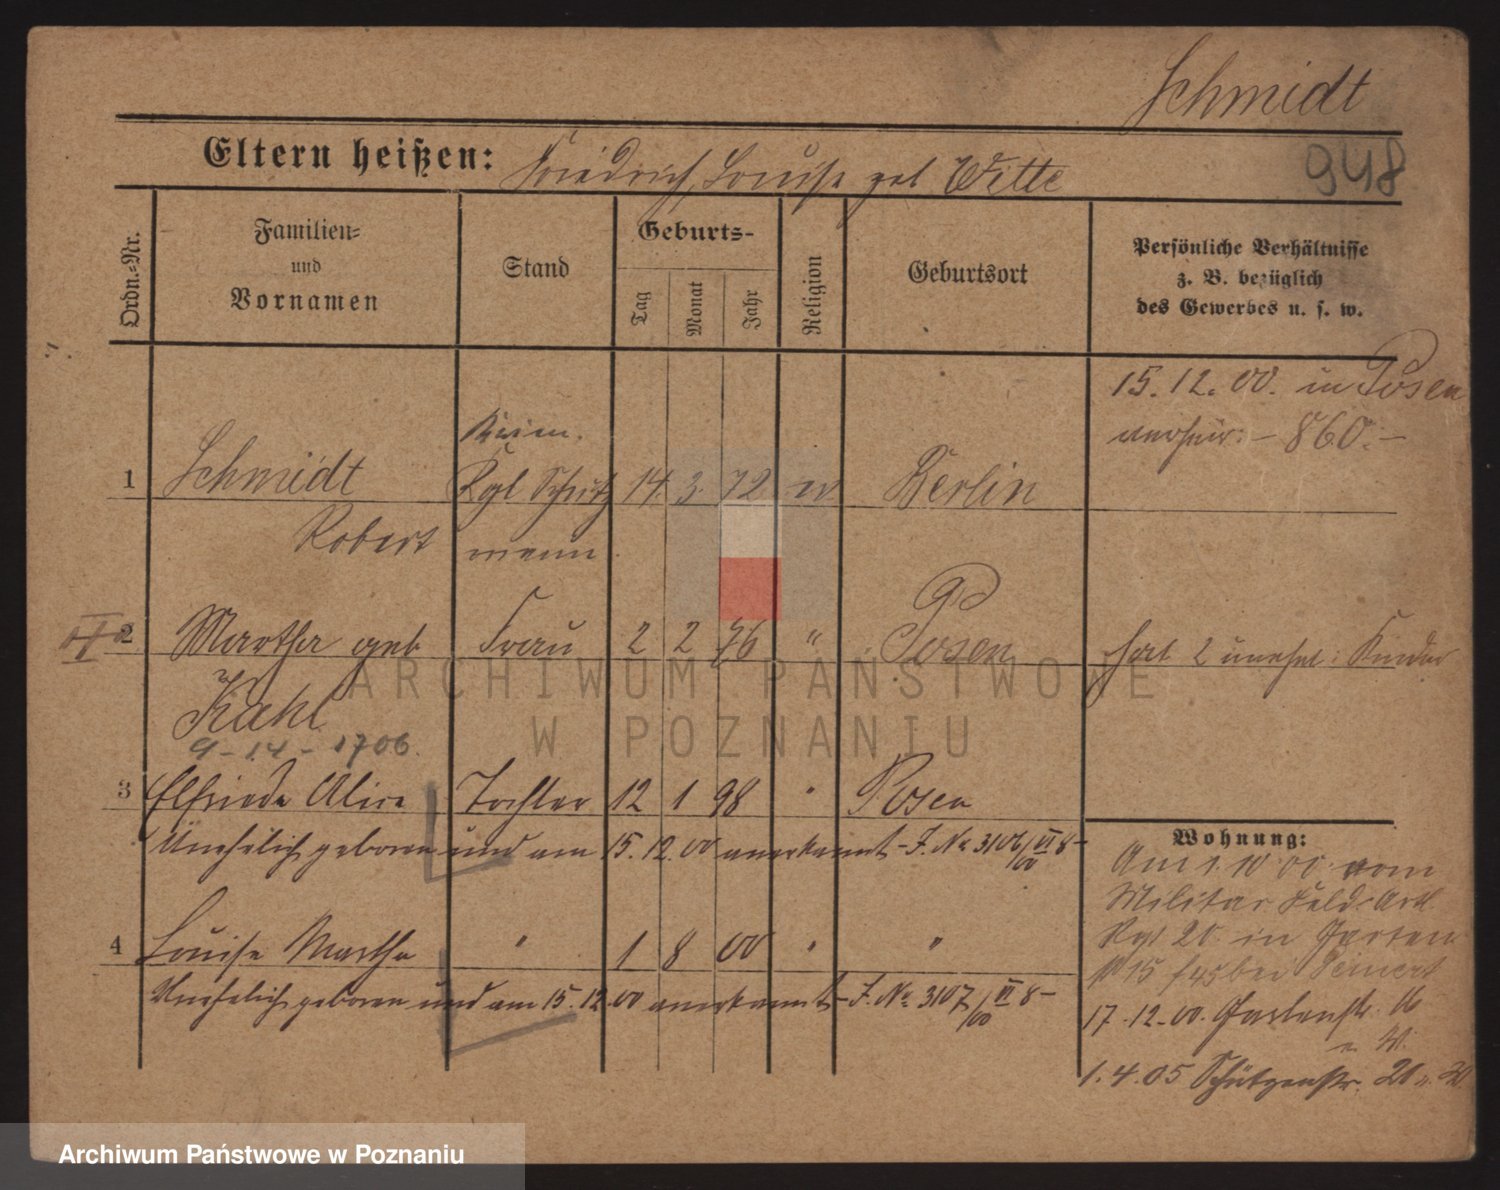 Schmidt
948
Eltern heißen: Friedrich, Louise geb Witte
Ordn.-Nr.
Familien- und Vornamen
Stand
Geburts-
Tag
Monat
Jahr
Religion
Geburtsort
Persönliche Verhältnisse
z. B. bezüglich
des Gewerbes u. s. w.
15. 12. 00. in Posen
verheir: – 860. –
1 Schmidt Kgl Schutz 14. 3. 72 ev Berlin
Robert mann
2 Martha geb Frau 2 2 76 " Posen hat 2 unehel: Kinder
Kahl
9 - 14 - 1706.
3 Elfriede Alice Tochter 12 1 98 " Posen
Unehelich geboren und am 15. 12. 00 anerkannt – J. No 3106/00 VI 8 –
4 Louise Martha " 1 8 00 " "
Unehelich geboren und am 15. 12. 00 anerkannt – J. No 3107/00 VI 8 –
Wohnung:
Am 1. 10. 00. vom
Militär Feld-Artl.
Rgt 20. in
15 bei
17. 12. 00. Gartenstr. 16
1. 4. 05 Schützenstr. 20
ARCHIWUM PAŃSTWOWE
W POZNANIU
Archiwum Państwowe w Poznaniu